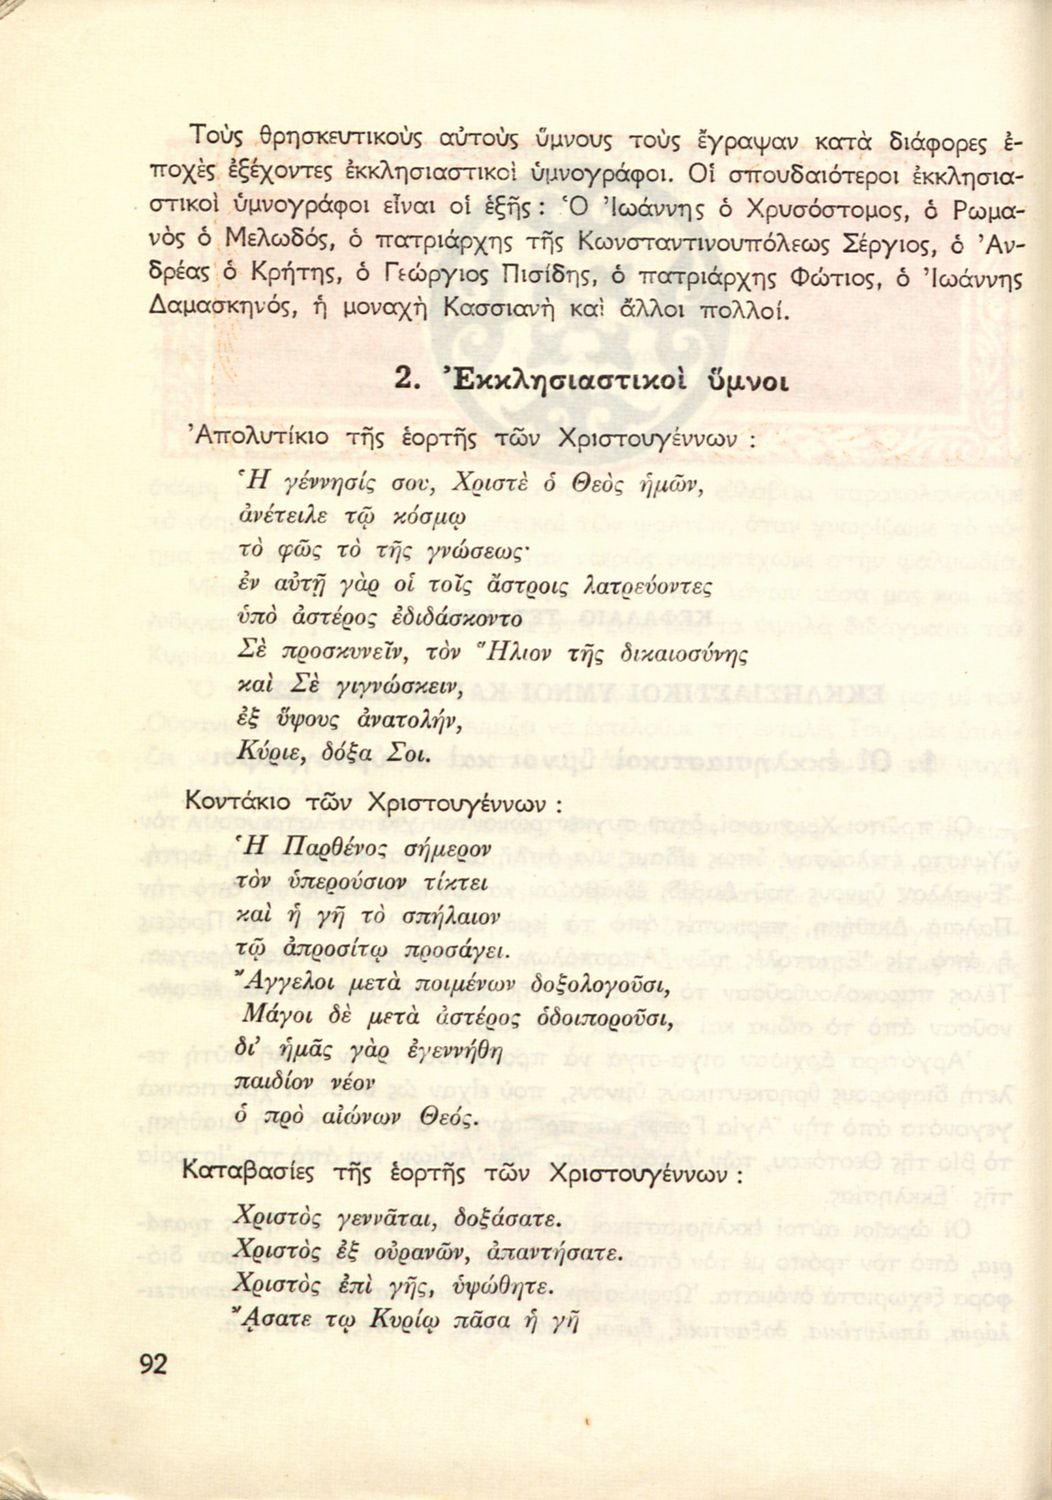 Τοὺς θρησκευτικοὺς αὐτοὺς ὕμνους τοὺς ἔγραψαν κατὰ διάφορες ἐ-
ποχὲς ἐξέχοντες ἐκκλησιαστικοὶ ὑμνογράφοι. Οἱ σπουδαιότεροι ἐκκλησια-
στικοὶ ὑμνογράφοι εἶναι οἱ ἑξῆς : Ὁ Ἰωάννης ὁ Χρυσόστομος, ὁ Ρωμα-
νὸς ὁ Μελωδός, ὁ πατριάρχης τῆς Κωνσταντινουπόλεως Σέργιος, ὁ Ἀν-
δρέας ὁ Κρήτης, ὁ Γεώργιος Πισίδης, ὁ πατριάρχης Φώτιος, ὁ Ἰωάννης
Δαμασκηνός, ἡ μοναχὴ Κασσιανὴ καὶ ἄλλοι πολλοί.
2. Ἐκκλησιαστικοὶ ὕμνοι
Ἀπολυτίκιο τῆς ἑορτῆς τῶν Χριστουγέννων :
Ἡ γέννησίς σου, Χριστὲ ὁ Θεὸς ἡμῶν,
ἀνέτειλε τῷ κόσμῳ
τὸ φῶς τὸ τῆς γνώσεως·
ἐν αὐτῇ γὰρ οἱ τοῖς ἄστροις λατρεύοντες
ὑπὸ ἀστέρος ἐδιδάσκοντο
Σὲ προσκυνεῖν, τὸν Ἥλιον τῆς δικαιοσύνης
καὶ Σὲ γιγνώσκειν,
ἐξ ὕψους ἀνατολήν,
Κύριε, δόξα Σοι.
Κοντάκιο τῶν Χριστουγέννων :
Ἡ Παρθένος σήμερον
τὸν ὑπερούσιον τίκτει
καὶ ἡ γῆ τὸ σπήλαιον
τῷ ἀπροσίτῳ προσάγει.
Ἄγγελοι μετὰ ποιμένων δοξολογοῦσι,
Μάγοι δὲ μετὰ ἀστέρος ὁδοιποροῦσι,
δι' ἡμᾶς γὰρ ἐγεννήθη
παιδίον νέον
ὁ πρὸ αἰώνων Θεός.
Καταβασίες τῆς ἑορτῆς τῶν Χριστουγέννων :
Χριστὸς γεννᾶται, δοξάσατε.
Χριστὸς ἐξ οὐρανῶν, ἀπαντήσατε.
Χριστὸς ἐπὶ γῆς, ὑψώθητε.
ᾌσατε τῳ Κυρίῳ πᾶσα ἡ γῆ
92